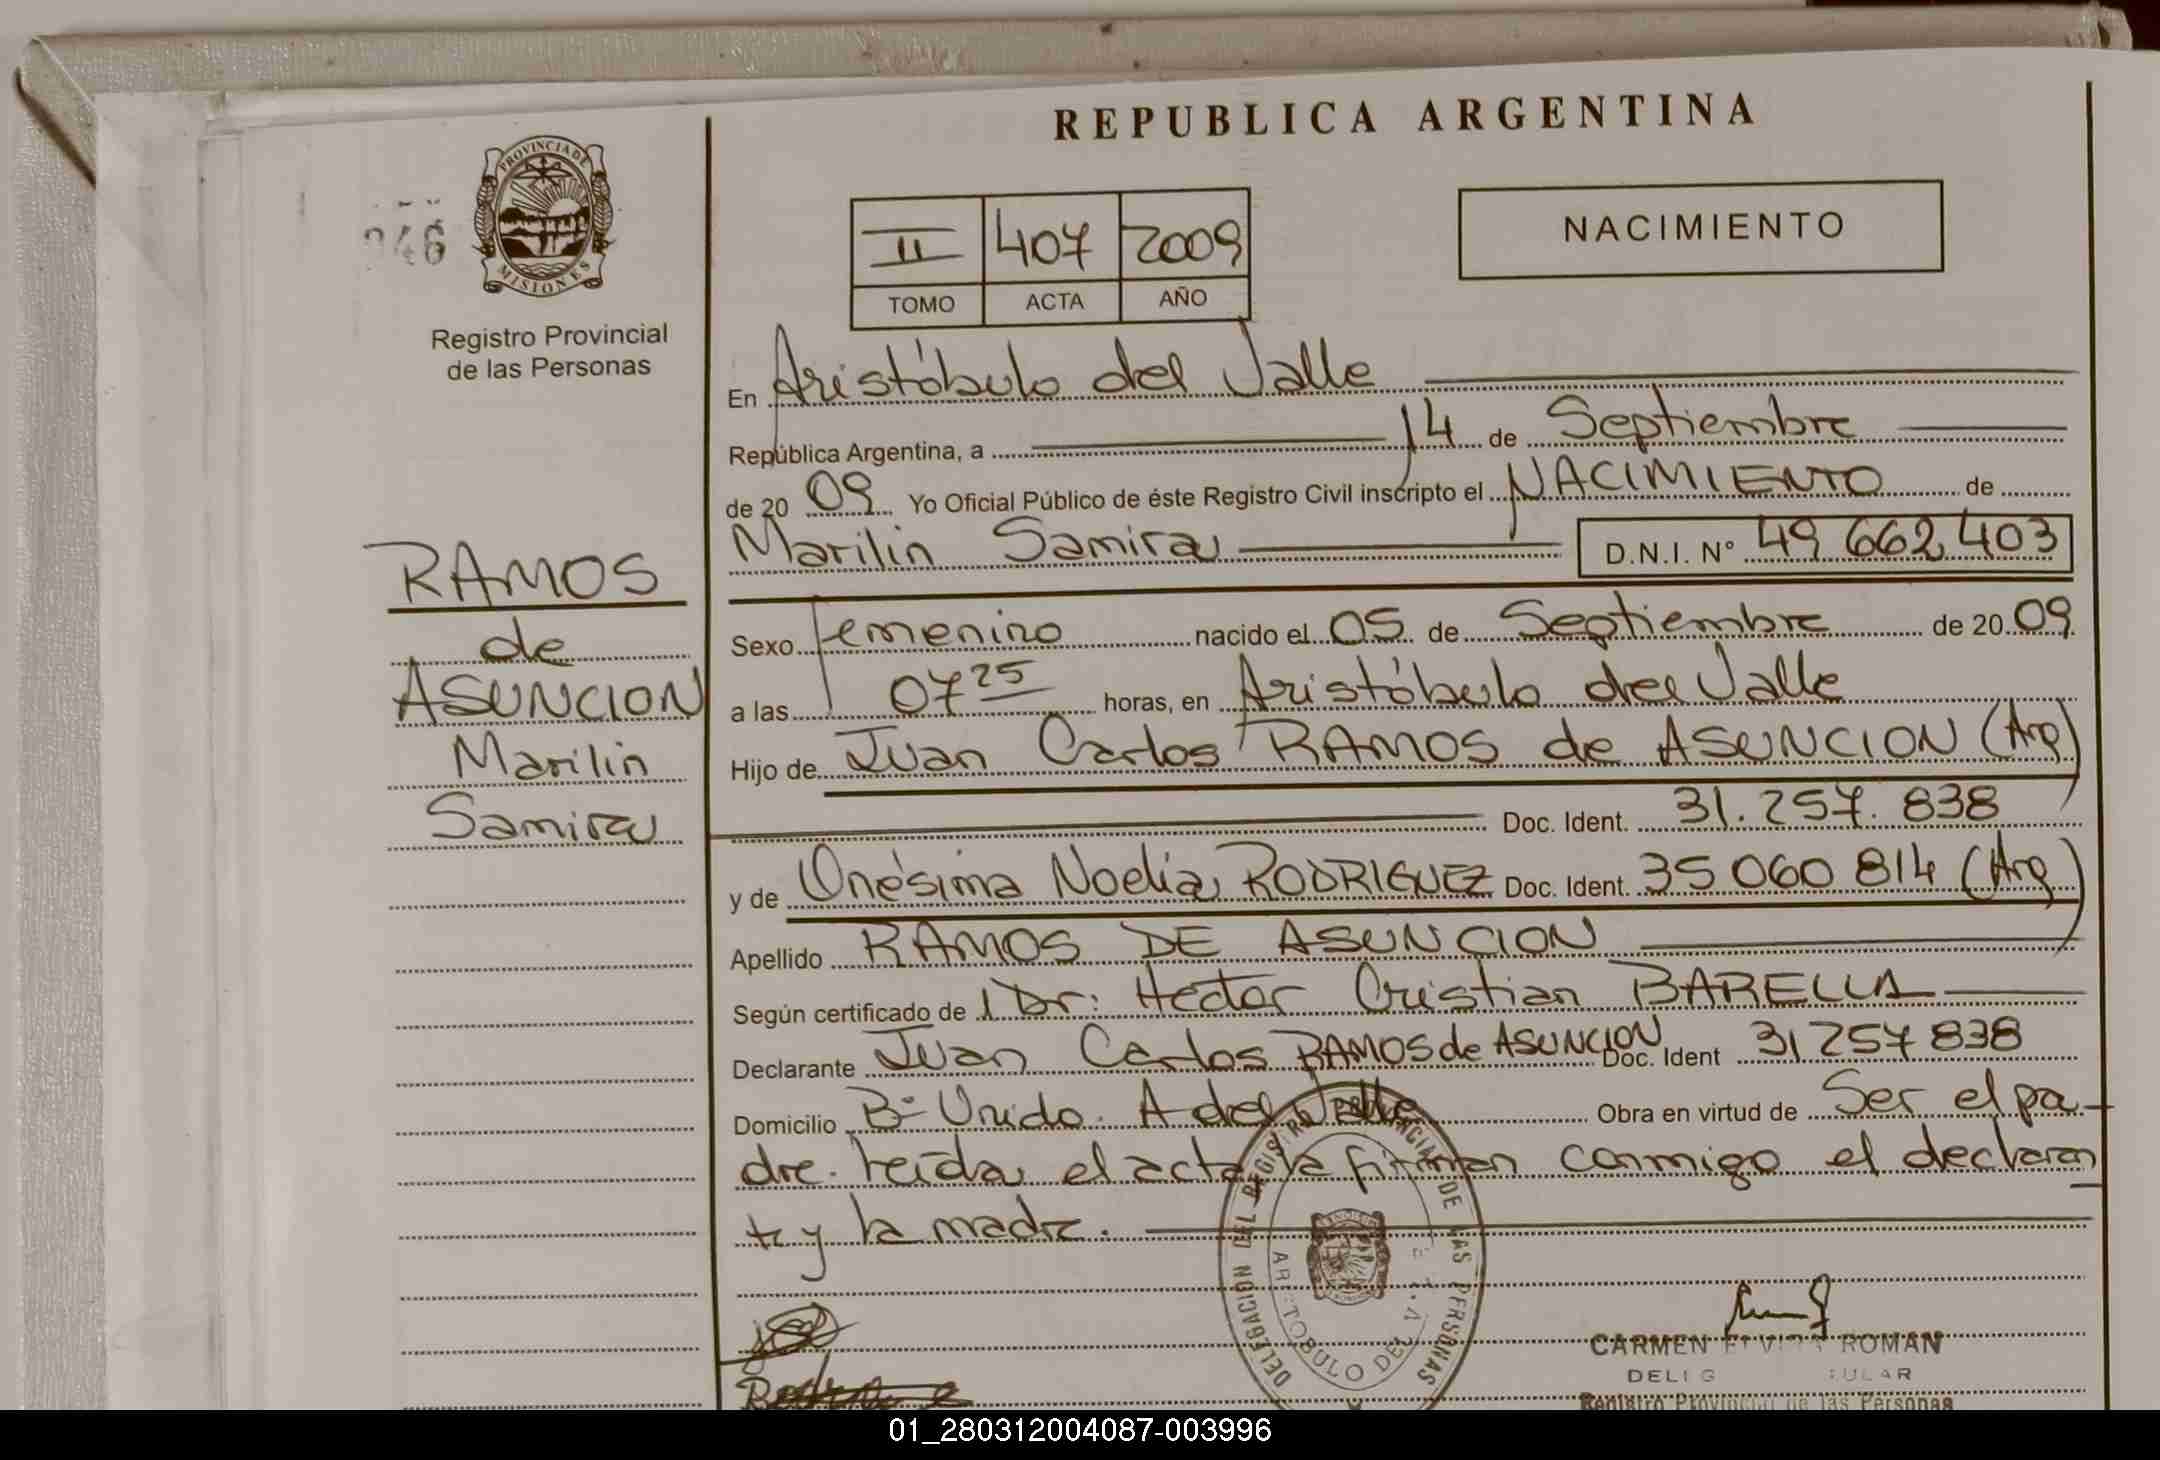 REPUBLICA ARGENTINA
PROVINCIA DE
MISIONES
246
Registro Provincial
de las Personas
II 407 2009
TOMO ACTA AÑO
NACIMIENTO
En Aristóbulo del Valle
República Argentina, a 14 de Septiembre
de 20 09 Yo Oficial Público de éste Registro Civil inscripto el NACIMIENTO de
Marilin Samira D.N.I. N° 49 662 403
RAMOS
de
ASUNCION
Marilin
Samira
Sexo femenino nacido el 05 de Septiembre de 20 09
a las 07 25 horas, en Aristóbulo del Valle
Hijo de Juan Carlos RAMOS de ASUNCION (Arg)
Doc. Ident. 31.257.838
y de Onésima Noelia RODRIGUEZ Doc. Ident. 35 060 814 (Arg)
Apellido RAMOS DE ASUNCION
Según certificado de Dr: Hector Cristian BARELLA
Declarante Juan Carlos RAMOS de ASUNCION Doc. Ident 31 257 838
Domicilio B° Unido. A del Valle Obra en virtud de Ser el pa-
dre. Leída el acta la firman conmigo el declaran
te y la madre.
DELEGACION DEL REGISTRO PROVINCIAL DE LAS PERSONAS
ARISTOBULO DEL V.
CARMEN ELVIRA ROMAN
Registro Provincial de las Personas
01_280312004087-003996